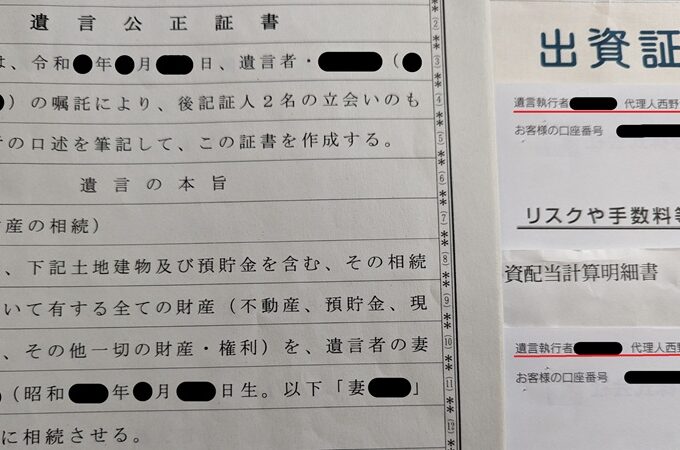 遺言公正証書
は、令和●年●月●日、遺言者・●（●
）の嘱託により、後記証人2名の立会いのも
の口述を筆記して、この証書を作成する。
遺言の本旨
産の相続）
、下記土地建物及び預貯金を含む、その相続
いて有する全ての財産（不動産、預貯金、現
、その他一切の財産・権利）を、遺言者の妻
（昭和●年●月●日生。以下「妻●」
に相続させる。
(2)
(3)
(4)
(5)
(6)
(7)
(8)
(9)
(10)
(11)
(12)
出資証
遺言執行者 代理人西野
お客様の口座番号
リスクや手数料等
資配当計算明細書
遺言執行者 代理人西野
お客様の口座番号